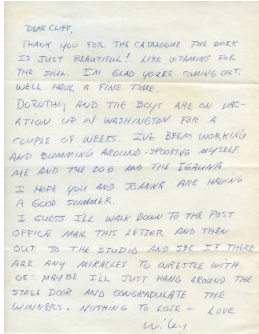 DEAR CLIFF,
THANK YOU FOR THE CATALOGUE THE WORK
IS JUST BEAUTIFUL! LIKE VITAMINS FOR
THE SOUL. I'M GLAD YOURS COMING OUT.
WE'LL HAVE A FINE TIME.
DOROTHY AND THE BOYS ARE ON VAC-
ATION UP IN WASHINGTON FOR A
COUPLE OF WEEKS. I'VE BEEN WORKING
AND BUMMING AROUND-SPOOKING MYSELF
ME AND THE DOG AND THE IGAUNA
I HOPE YOU AND JOANNA ARE HAVING
A GOOD SUMMER.
I GUESS I'LL WALK DOWN TO THE POST
OFFICE MAIL THIS LETTER AND THEN
OUT TO THE STUDIO AND SEE IF THERE
ARE ANY MIRACLES TO WRESTLE WITH.
OR MAYBE I'LL JUST HANG AROUND THE
STAGE DOOR AND CONGRADULATE THE
WINNERS. NOTHING TO LOSE - LOVE
Wiley